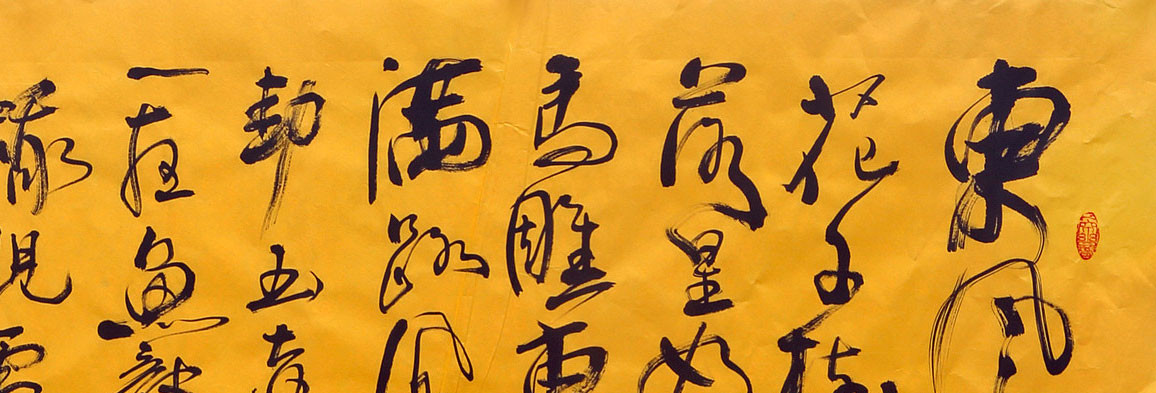 東風
花千樹
落星如
馬雕車
滿路鳳
動玉壺
一夜魚龍
蛾兒雪